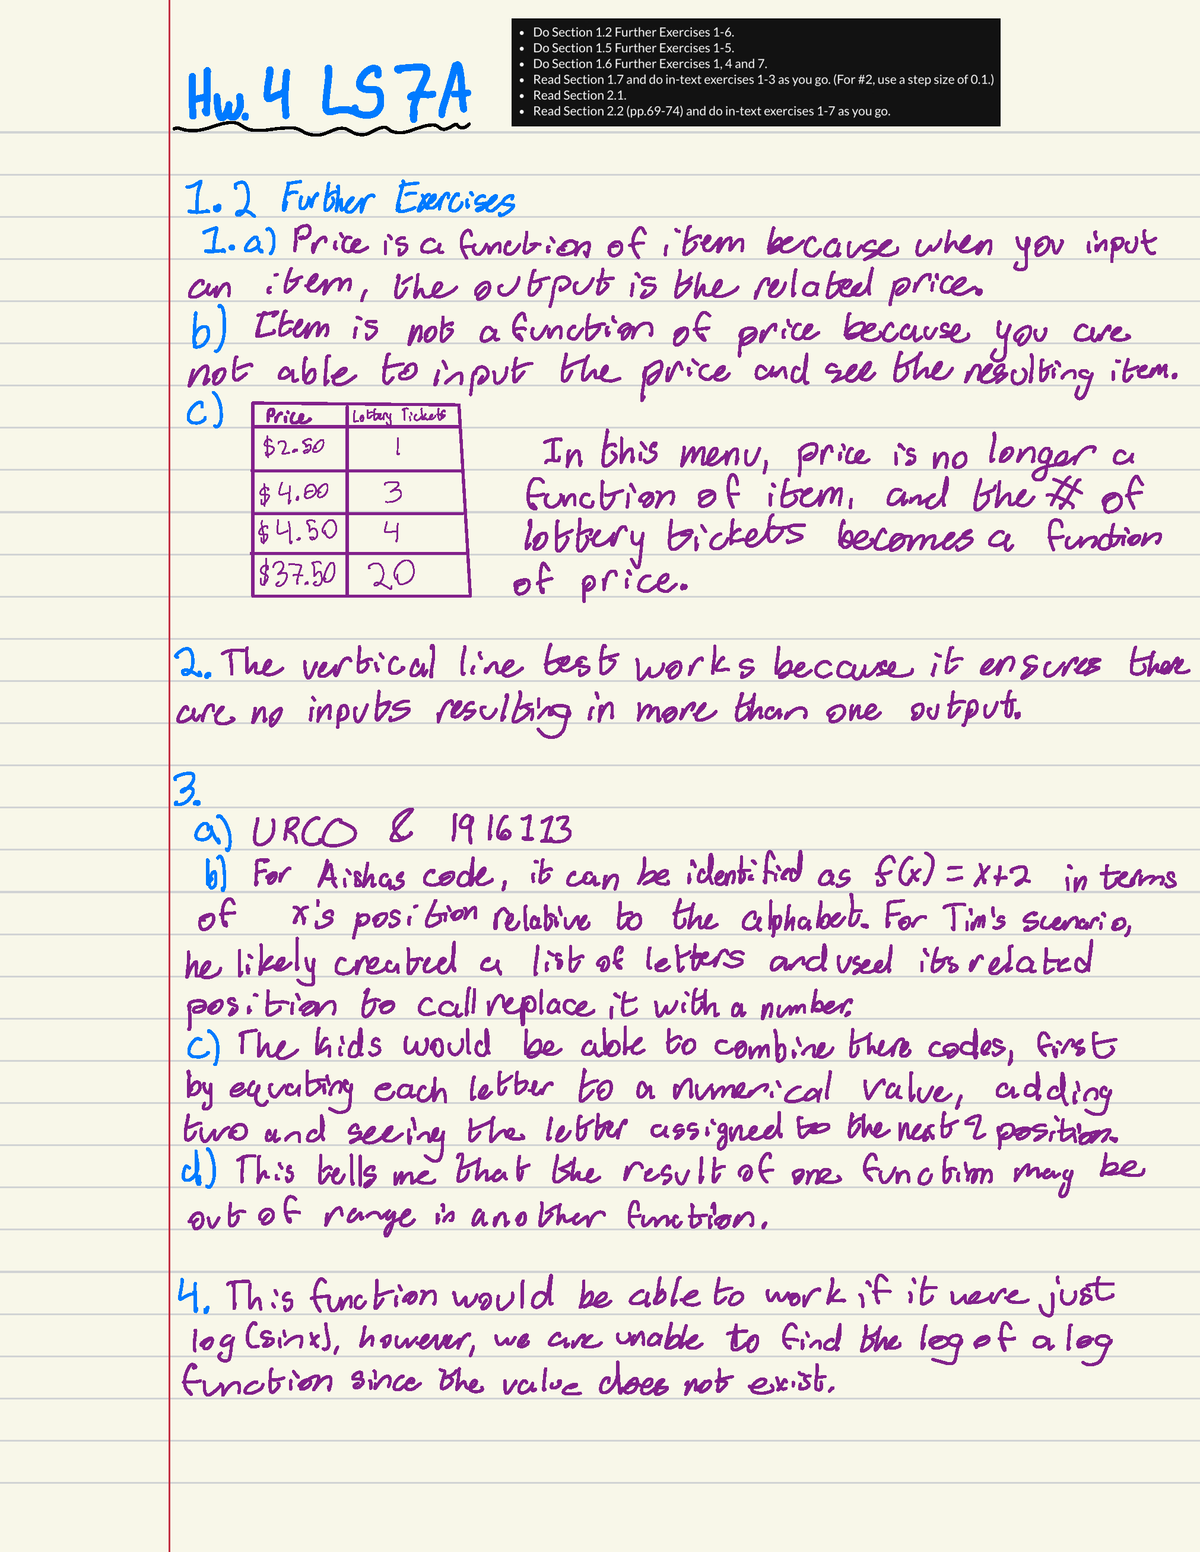 • Do Section 1.2 Further Exercises 1-6.
• Do Section 1.5 Further Exercises 1-5.
• Do Section 1.6 Further Exercises 1, 4 and 7.
• Read Section 1.7 and do in-text exercises 1-3 as you go. (For #2, use a step size of 0.1.)
• Read Section 2.1.
• Read Section 2.2 (pp.69-74) and do in-text exercises 1-7 as you go.
Hw. 4 LS 7A
1.2 Further Exercises
1. a) Price is a function of item because when you input
an item, the output is the related price.
b) Item is not a function of price because you are
not able to input the price and see the resulting item.
c)
Price Lottery Tickets
$2.50 1
$4.00 3
$4.50 4
$37.50 20
In this menu, price is no longer a
function of item, and the # of
lottery tickets becomes a function
of price.
2. The vertical line test works because it ensures there
are no inputs resulting in more than one output.
3.
a) URCO & 1916113
b) For Aishas code, it can be identified as f(x) = x+2 in terms
of x's position relative to the alphabet. For Tim's scenario,
he likely created a list of letters and used its related
position to call replace it with a number.
c) The kids would be able to combine there codes, first
by equating each letter to a numerical value, adding
two and seeing the letter assigned to the next 2 position.
d) This tells me that the result of one function may be
out of range in another function.
4. This function would be able to work if it were just
log (sinx), however, we are unable to find the log of a log
function since the value does not exist.